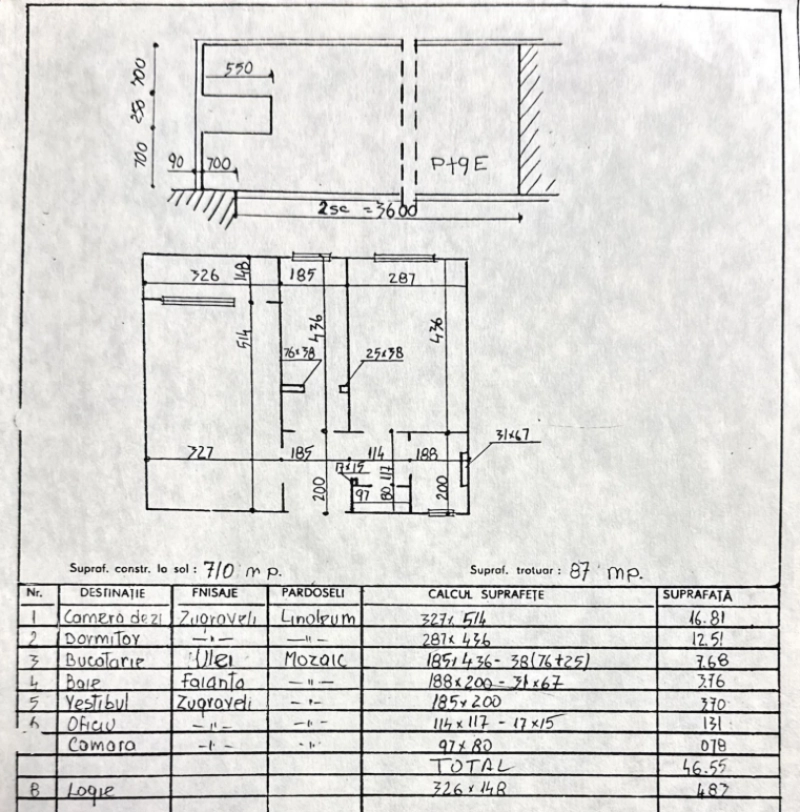 550
700
250
700
90 700
P+9E
2sc = 3600
326 148 185 287
514 436 436
76x38 25x38
31x67
327 185 114 188
17x15
200 97 80 117 200
Supraf. constr. la sol : 710 mp. Supraf. trotuar : 87 mp.
Nr. DESTINAȚIE FNISAJE PARDOSELI CALCUL SUPRAFEȚE SUPRAFAȚĂ
1 Camera de zi Zugraveli Linoleum 327x514 16.81
2 Dormitor —"— —"— 287x436 12.51
3 Bucatarie Ulei Mozaic 185x436-38(76+25) 7.68
4 Baie Faianta —"— 188x200-31x67 3.76
5 Vestibul Zugraveli —"— 185x200 370
6 Oficiu —"— —"— 114x117-17x15 131
Camara —"— —"— 97x80 078
TOTAL 46.55
8 Logie 326x148 4.87